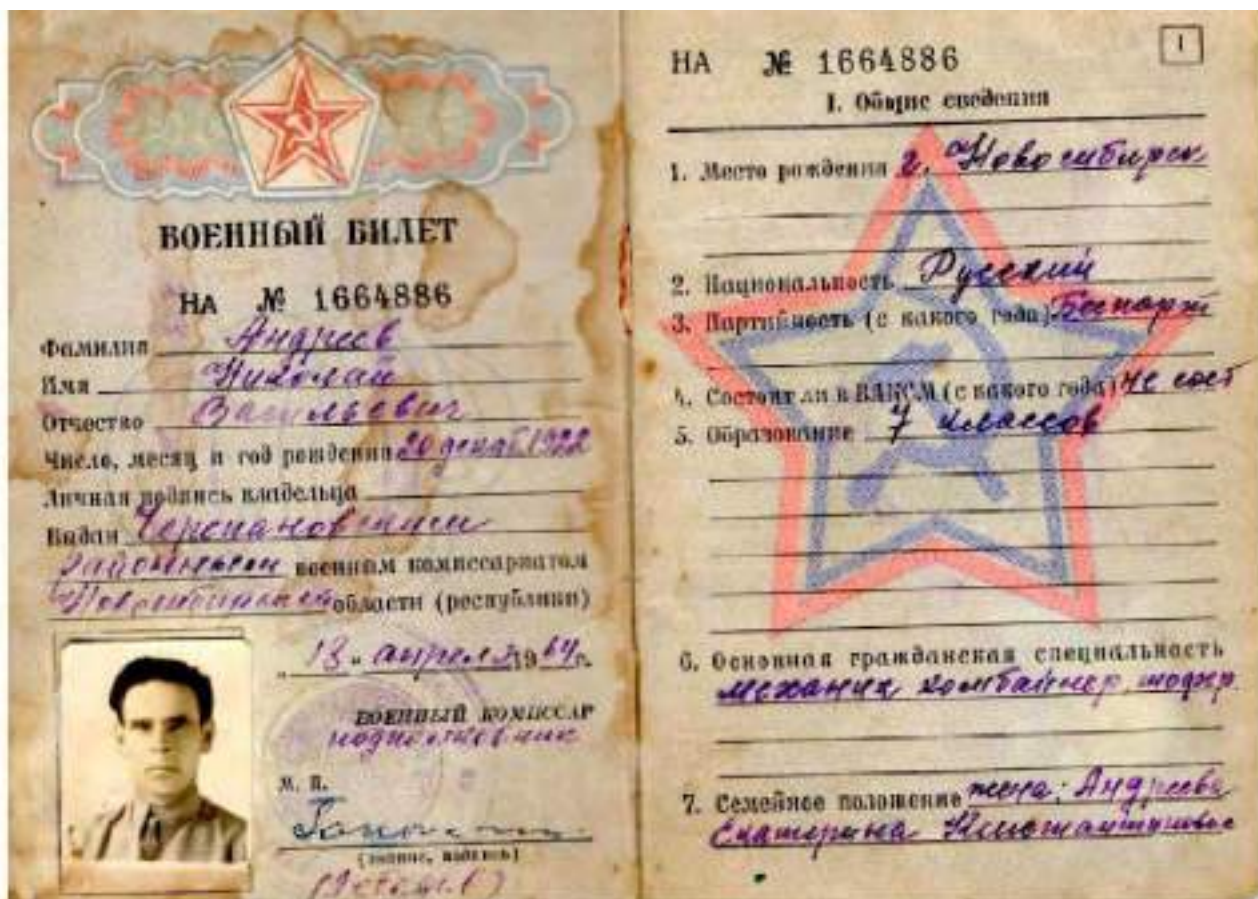 ВОЕННЫЙ БИЛЕТ
НА № 1664886
Фамилия Андреев
Имя Николай
Отчество Васильевич
Число, месяц и год рождения 20 декаб 1922
Личная подпись владельца
Выдан Черепановским
районным военным комиссариатом
Новосибирской области (республики)
"13" апреля 1964 г.
ВОЕННЫЙ КОМИССАР
подполковник
М. П.
(звание, подпись)
НА № 1664886
1
I. Общие сведения
1. Место рождения г. Новосибирск
2. Национальность Русский
3. Партийность (с какого года) Беспарт
4. Состоит ли в ВЛКСМ (с какого года) не сост
5. Образование 7 классов
6. Основная гражданская специальность
механик комбайнер,
7. Семейное положение жена: Андреева
Екатерина Константиновна